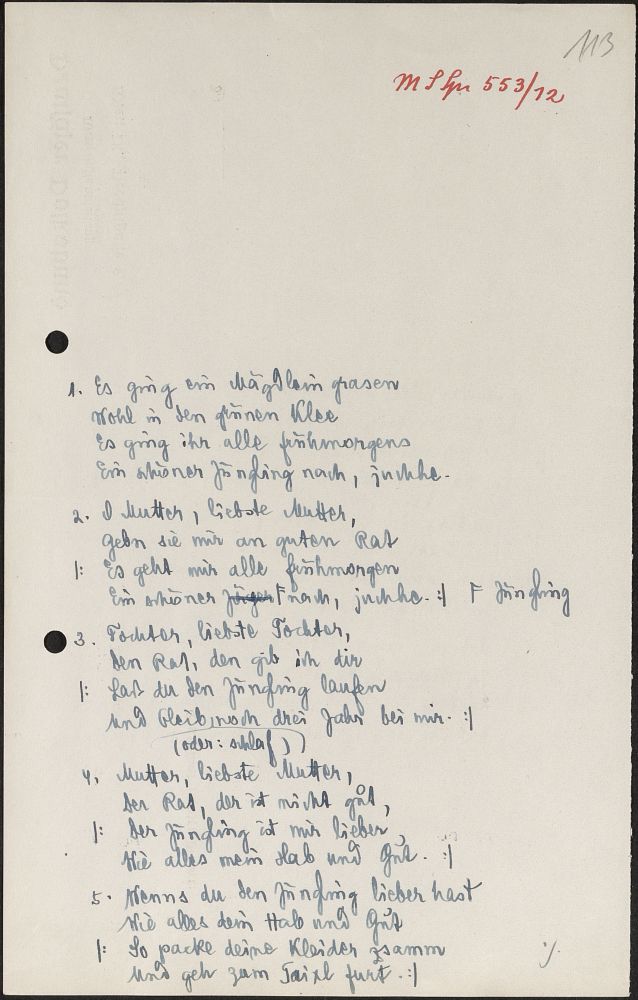 113
553/12
1. Es ging ein Mägdlein grasen
Wohl in den grünen Klee
Es ging ihr alle frühmorgens
Ein schöner Jüngling nach, juchhe.
2. O Mutter, liebste Mutter,
gebn sie mir an guten Rat
|: Es geht mir alle frühmorgen
Ein schöner Jäger F nach, juchhe. :| F Jüngling
3. Tochter, liebste Tochter,
den Rat, den gib ich dir
|: Laß du den Jüngling laufen
und bleib noch drei Jahr bei mir. :|
(oder: schlaf)
4. Mutter, liebste Mutter,
der Rat, der ist nicht gůt,
|: Der Jüngling ist mir lieber,
Wie alles mein Hab und Gůt. :|
5. Wenns du den Jüngling lieber hast
Wie alles dein Hab und Gůt
|: So packe deine Kleider zsamm
und geh zum Taixl furt. :|
./.